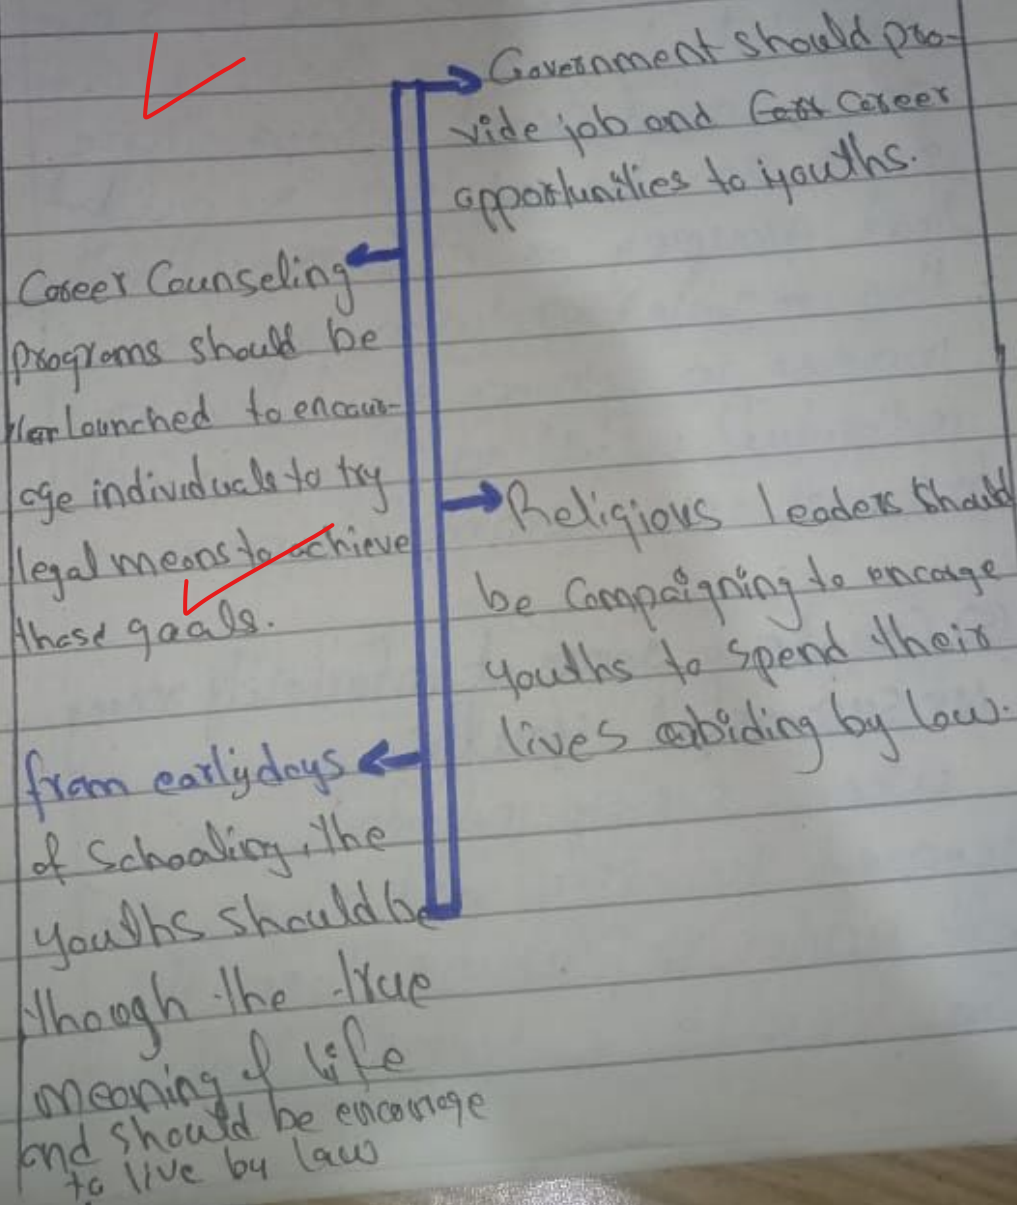 Government should pro-
vide job and Career
opportunities to youths.
Career Counseling
programs should be
launched to encour-
age individuals to try
legal means to achieve
these goals.
Religious leaders should
be Campaigning to encorage
youths to spend their
lives abiding by law.
from early days
of Schooling, the
youths should be
though the true
meaning of life
and should be encourage
to live by law